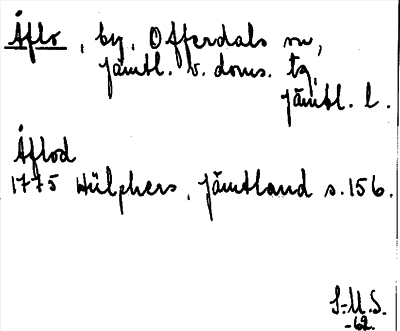 Åflo, by, Offerdals sn,
Jämtl. v. doms. tg,
Jämtl. l.
Åflod
1775 Hülphers, Jämtland s. 156.
S.M.S.
-62.